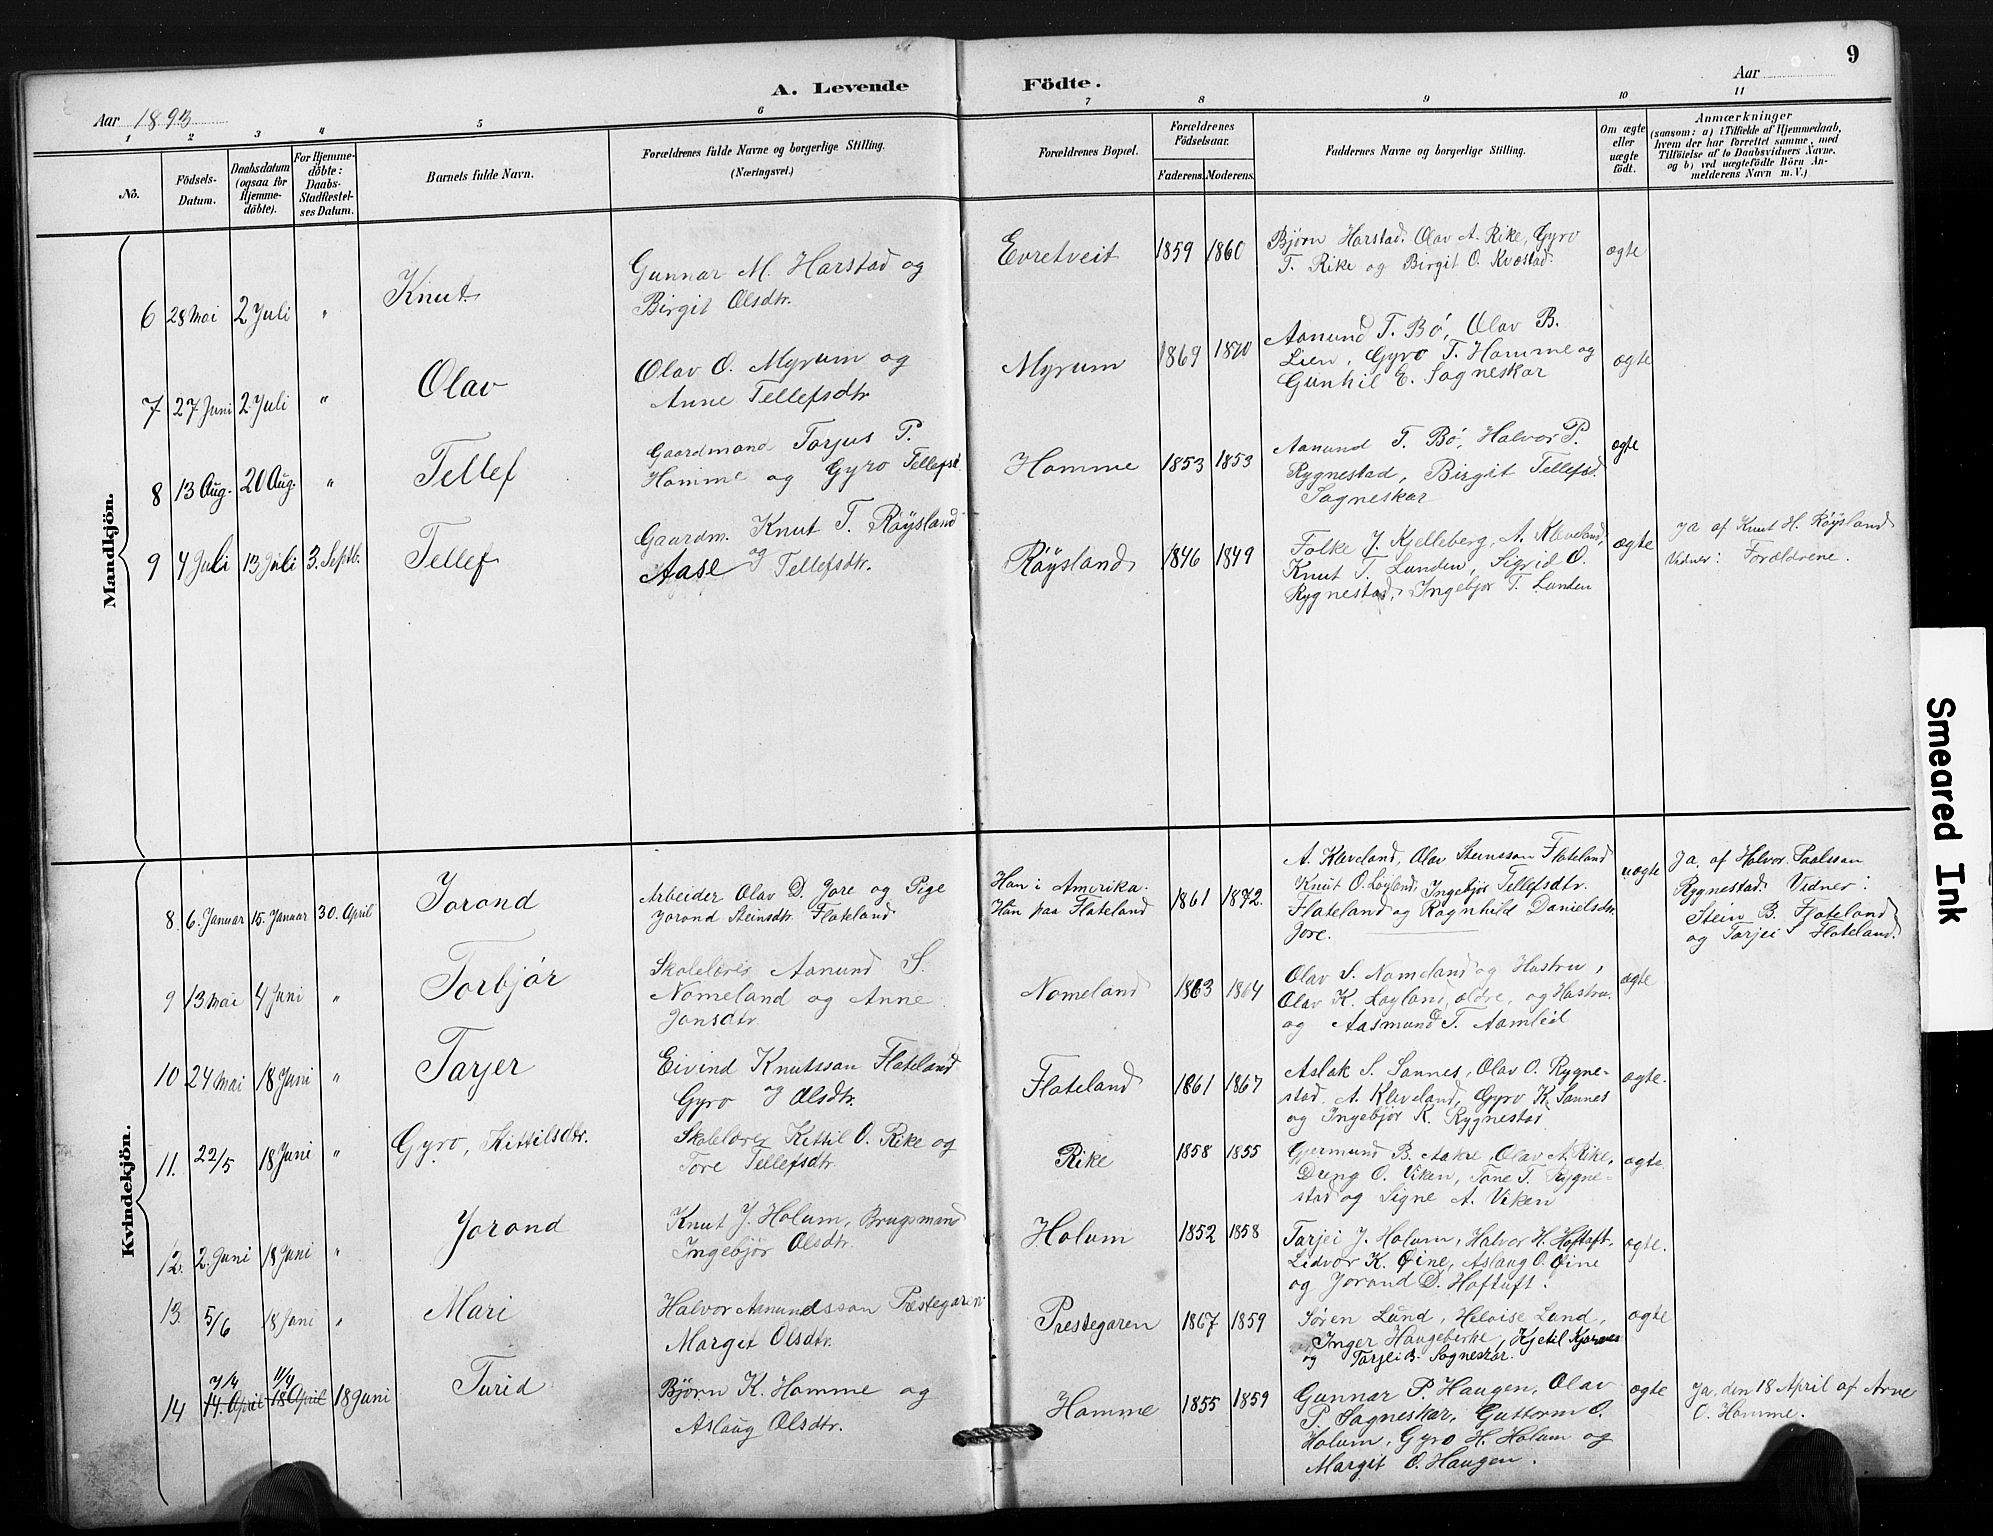 9
A. Levende Födte.
Aar 1893
Aar
1 2 3 4 5 6 7 8 9 10 11
No.
Födsels-
Datum.
Daabsdatum
(ogsaa for
Hjemme-
döbte).
For Hjemme-
döbte:
Daabs-
Stadfæstel-
ses Datum.
Barnets fulde Navn.
Forældrenes fulde Navne og borgerlige Stilling.
(Næringsvei.)
Forældrenes Bopæl.
Forældrenes
Födselsaar.
Faderens. Moderens.
Faddernes Navne og borgerlige Stilling.
Om ægte
eller
uægte
födt.
Anmærkninger
(saasom: a) i Tilfælde af Hjemmedaab,
hvem der har forrettet samme, med
Tilföielse af to Daabsvidners Navne,
og b) ved uægtefödte Börn An-
melderens Navn m. V.)
Mandkjön.
6 28 Mai 2 Juli " Knut
Gunnar M. Harstad og
Birgit Olsdtr.
Evretveit 1859 1860
Bjørn Harstad, Olav A. Rike, Gyro
T. Rike og Birgit O. Kvæstad.
ægte
7 27 Juni 2 Juli " Olav
Olav O. Myrum og
Anne Tellefsdtr
Myrum 1869 1870
Aanund T. Bø, Olav B.
Lien, Gyro T. Homme og
Gunhil E. Sagneskar
ægte
8 13 Aug. 20 Aug. " Tellef
Gaardmand Torjus P.
Homme og Gyro Tellefsd
Homme 1853 1853
Aanund T. Bø, Halvor P.
Rygnestad, Birgit Tellefsd.
Sagneskar
ægte
9 4 Juli 13 Juli 3. Septb. Tellef
Gaardm. Knut T. Røysland
og
Aase Tellefsdtr.
Røysland 1846 1849
Folke J. Kjelleberg, A. Kleveland,
Knut T. Lunden, Sigrid O.
Rygnestad, Ingebjør T. Lunden
ægte
Ja af Knut H. Røysland
Vidner: Forældrene.
Kvindekjön.
8. 6. Januar 15. Januar 30. April Jorond
Arbeider Olav D. Jore og Pige
Jorond Steinsdtr. Flateland
Han i Amerika.
Hun paa Flateland
1861 1872.
A. Kleveland, Olav Steinsson Flateland
Knut O. Løyland, Ingebjør Tellefsdtr.
Flateland og Ragnhild Danielsdtr.
Jore.
uægte
Ja, af Halvor Paalsson
Rygnestad. Vidner:
Stein B. Flateland
og Tarjei S Flateland.
9 13 Mai 4 Juni " Torbjør
Skolelærer Aanund S.
Nomeland og Anne
Jonsdtr.
Nomeland 1863 1864
Olav S. Nomeland og Hustru,
Olav K. Løyland, ældre, og Hustru
og Aasmund T. Aamlid
ægte
10 24 Mai 18 Juni " Tarjer
Eivind Knutsson Flateland
Gyro og Olsdtr.
Flateland 1861 1867
Aslak S. Sannes, Olav O. Rygne-
stad. A. Kleveland, Gyro K. Sannes
og Ingebjør K. Rygnestad
ægte.
11. 22/5 18 Juni " Gyro, Kittilsdtr.
Skolelærer Kittil O. Rike og
Tore Tellefsdtr
Rike 1858 1855
Gjermund B. Aakre, Olav A. Rike,
Dreng O. Viken, Tone T. Rygne-
stad og Signe A. Viken
ægte
12. 2. Juni 18 Juni " Jorond
Knut J. Holum, Brugsmand
Ingebjør Olsdtr.
Holum 1852 1858
Tarjei J. Holum, Halvor H. Hoftuft,
Lidvor K. Øine, Aslaug O. Øine
og Jorond D. Hoftuft.
ægte.
13. 5/6 18 Juni " Mari
Halvor Asmundsson Prestegaren
Margit Olsdtr.
Prestegaren 1867 1859
Søren Lund, Heloise Lund,
Inger Haugeberke, Kjetil
og Tarjei B. Sagneskar.
ægte
14 7/4 14. April 11/4 18 April 18 Juni Turid
Bjørn K. Homme og
Aslaug Olsdtr.
Homme 1855 1859
Gunnar P. Haugen, Olav
P. Sagneskar, Guttorm O.
Holum, Gyro H. Holum og
Margit O. Haugen.
ægte
Ja, den 18 April af Arne
O. Homme.
Smeared Ink